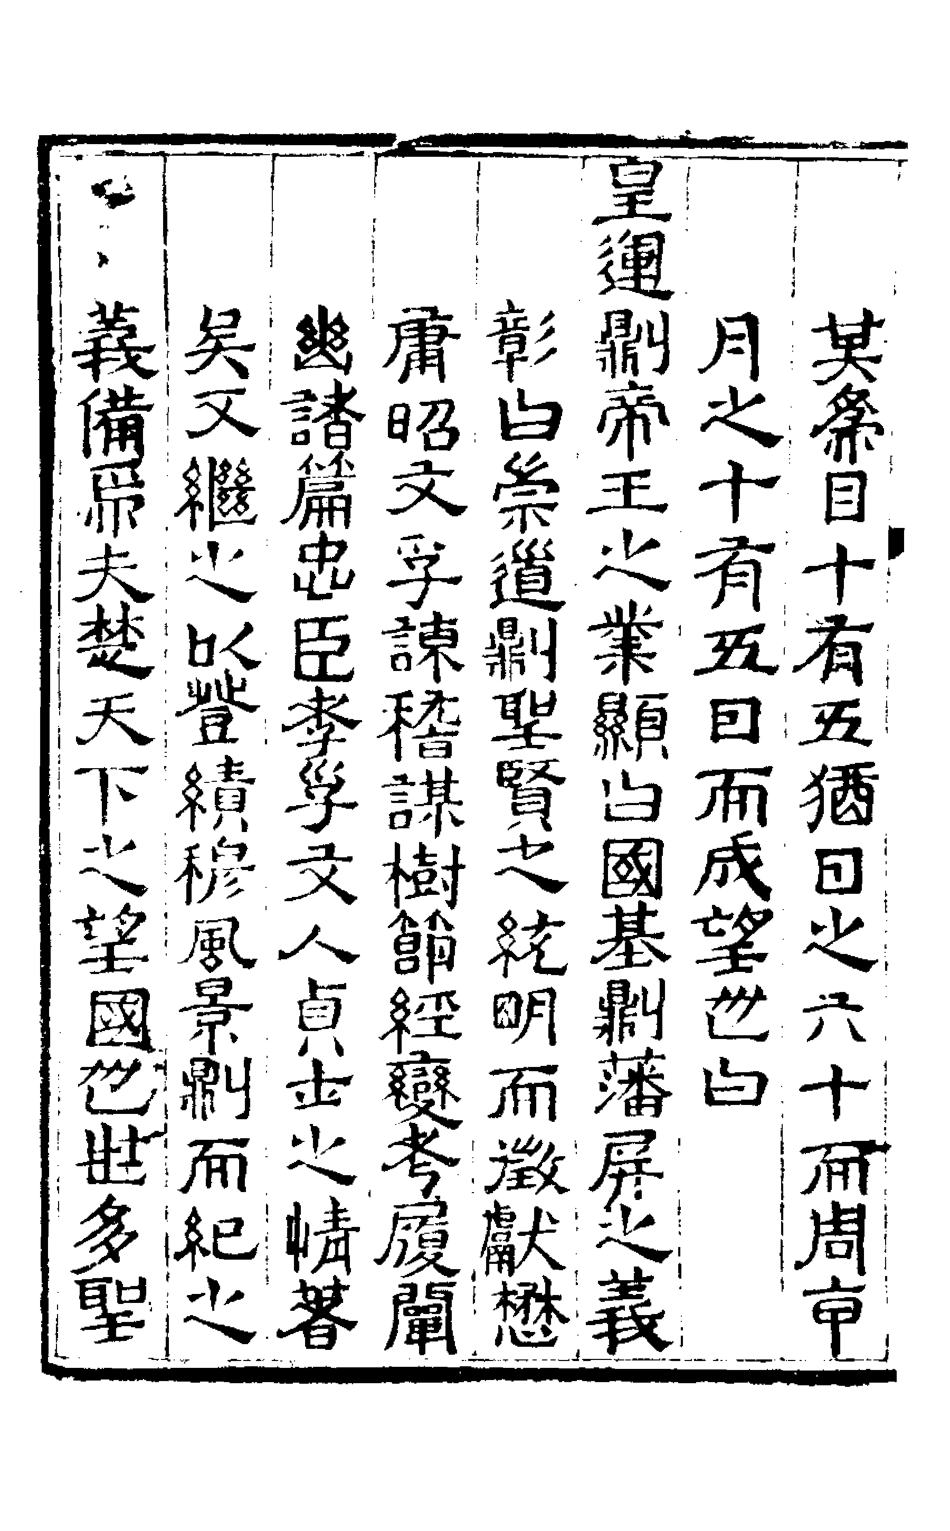 其條目十有五猶日之六十而周甲
月之十有五日而成望也白
皇運則帝王之業顯白國基則藩屏之義
彰白崇道則聖賢之統明而徵獻懋
庸昭文孚諫稽謀樹節經變考履闡
幽諸篇忠臣孝子文人貞士之情著
矣又繼之以登績穆風景則而紀之
義備焉夫楚天下之望國也壯多聖